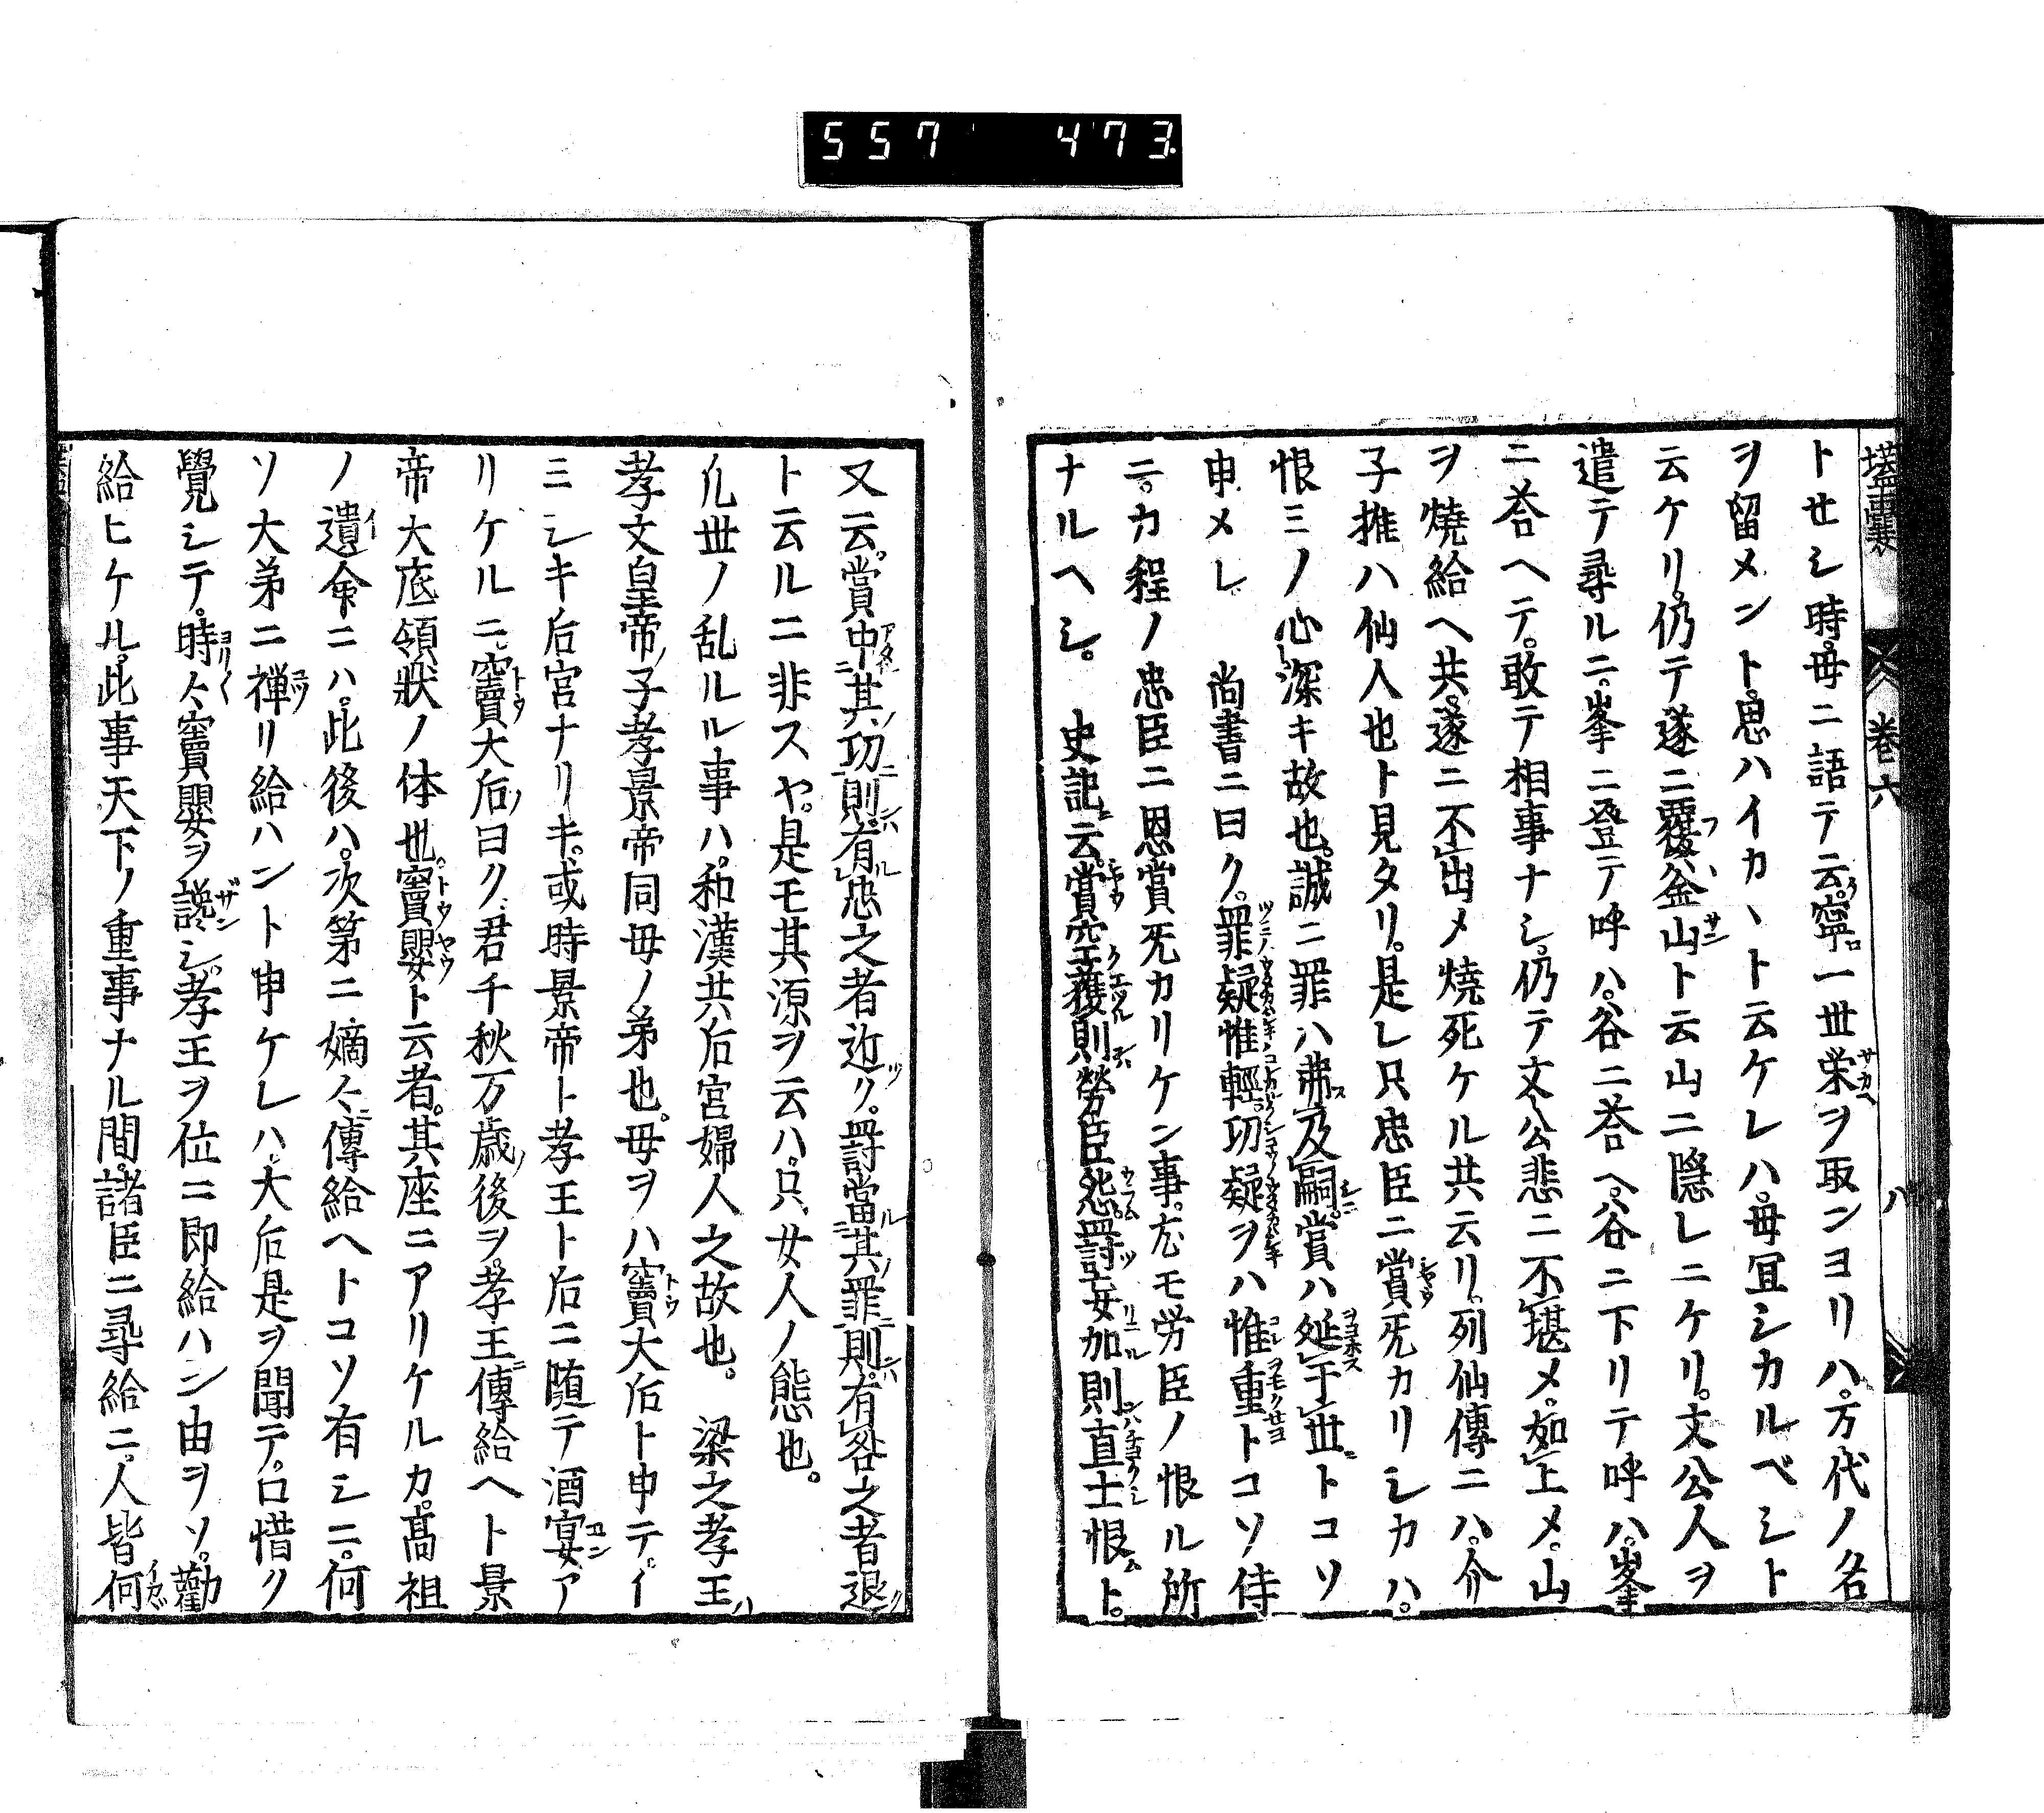 557 473
壒囊 巻六 八
トせシ時。毋ニ語テ云ク。寧ロ一世栄ヲ取ンヨリハ。万代ノ名
ヲ留メント。思ハイカヽト云ケレハ。毋冝シカルベシト
云ケリ。仍テ遂ニ覆釜山ト云山ニ隠レニケリ。文公人ヲ
遣テ尋ルニ。峯ニ登テ呼ハ。谷ニ荅ヘ。谷ニ下リテ呼ハ。峯
ニ荅ヘテ。敢テ相事ナシ。仍テ文公悲ニ不堪メ。如上メ。山
ヲ燒給ヘ共。遂ニ不出メ燒死ケル共云リ。列仙傳ニハ。介
子推ハ仙人也ト見タリ。是レ只忠臣ニ賞旡カリシカハ。
恨ミノ心深キ故也。誠ニ罪ハ弗及嗣。賞ハ延于世トコソ
申メレ 尚書ニ曰ク。罪疑惟輕。功疑ヲハ惟重トコソ侍
ニ。カ程ノ忠臣ニ恩賞旡カリケン事。尤モ労臣ノ恨ル所
ナルヘシ。 史記云。賞空獲則勞臣怨。罸妄加則直士恨ト。
又云。賞中其功則有忠之者近ク。罸當其罪則有咎之者退
ト云ルニ非スヤ。是モ其源ヲ云ハ。只女人ノ態也。
凡世ノ乱ルル事ハ。和漢共后宮婦人之故也。 梁之孝王ハ
孝文皇帝ノ子孝景帝同毋ノ弟也。毋ヲハ竇大后ト申テ。イ
ミシキ后宮ナリキ。或時景帝ト孝王ト后ニ随テ酒宴ア
リケルニ。竇大后ノ曰ク。君千秋万歳ノ後ヲ。孝王ニ傳給ヘト景
帝大底領狀ノ体也。竇嬰ト云者。其座ニアリケルカ。髙祖
ノ遺命ニハ。此後ハ。次第ニ嫡々ニ傳給ヘトコソ有シニ。何
ソ大弟ニ禅リ給ハント申ケレハ。大后是ヲ聞テ。口惜ク
覺シテ。時々竇嬰ヲ讒シ。孝王ヲ位ニ即給ハン由ヲソ。勸
給ヒケル。此事天下ノ重事ナル間。諸臣ニ尋給ニ。人皆何